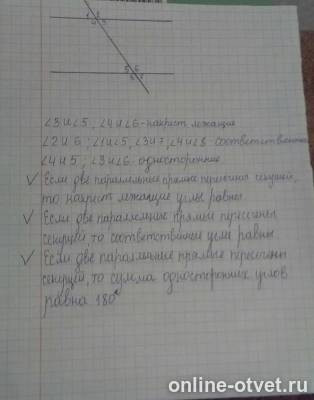 1 2
4 3
5 6
8 7
∠3 и ∠5; ∠4 и ∠6 - накрест лежащие
∠2 и 6; ∠1 и ∠5, ∠3 и 7; ∠4 и ∠8 - соответственные
∠4 и 5; ∠3 и ∠6 - односторонние
✓ Если две параллельные прямые пересечены секущей,
то накрест лежащие углы равны.
✓ Если две параллельные прямы пересечены
секущей, то соответственные углы равны.
✓ Если две параллельные прямые пересечены
секущей, то сумма односторонних углов
равна 180°
online-otvet.ru